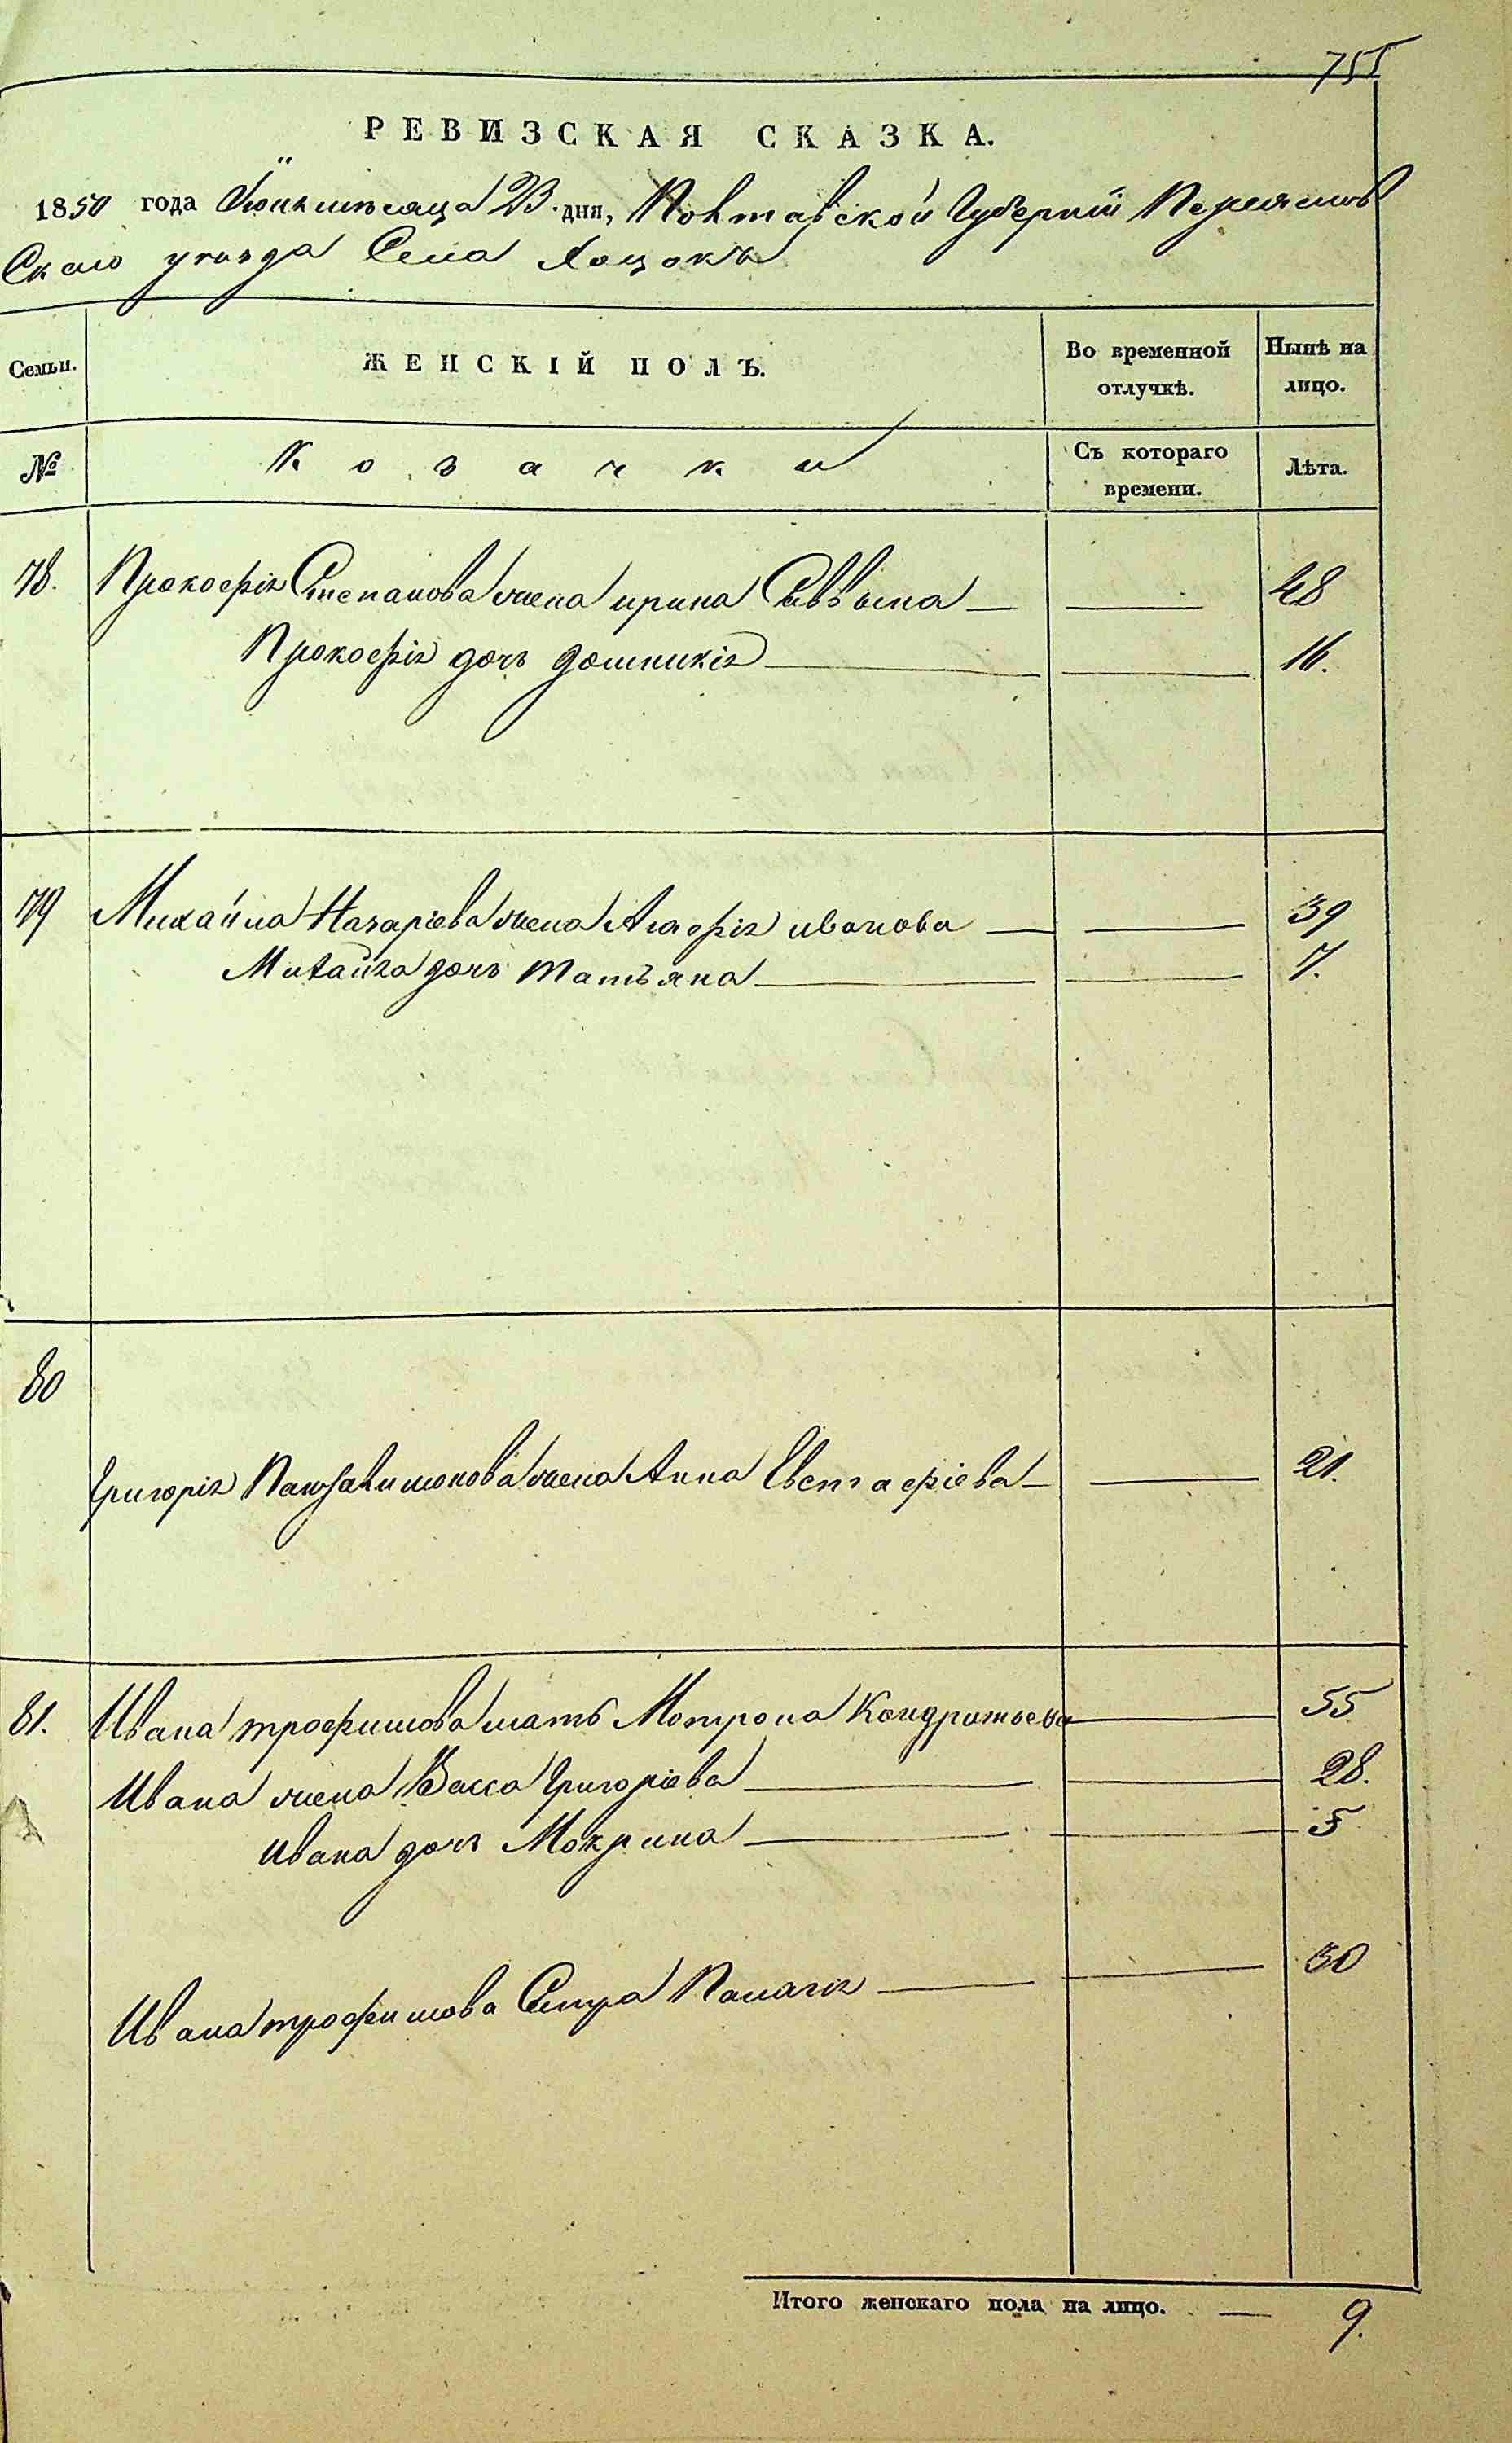 755
РЕВИЗСКАЯ СКАЗКА.
1850 года Іюня мѣсяца 23 дня, Полтавской Губерніи Переяслов
Скаго уѣзда Села Хоцокъ
Семьи.
ЖЕНСКІЙ ПОЛЪ.
Во временной отлучкѣ.
Нынѣ на лицо.
№
Козачки
Съ котораго времени.
Лѣта.
78. Прокофія Степанова жена ирина Саввына — — 48
Прокофія дочь домникія — — 16.
79 Михайла Назаріева жена Агафія иванова — — 39
Михайла дочь татьяна — — 7.
80
Григорія Панталимонова жена Анна Евстафіева — — 21.
81. Ивана трофимова мать Мотрона Кондратьева — 55
Ивана жена Васса Григоріева — — 28.
Ивана дочь Мокрина — — 5
Ивана трофимова Сестра Палагія — — 30
Итого женскаго пола на лицо. — 9.